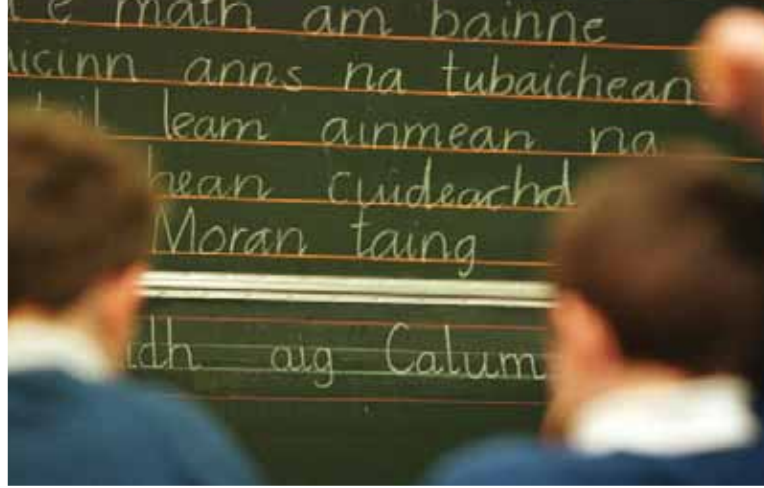 e math am bainne
aicinn anns na tubaichean
toil leam ainmean na
hean cuideachd
Moran taing
idh aig Calum